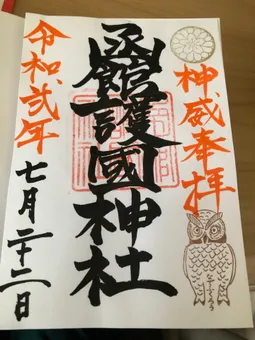 神威奉拝
函館護國神社
令和弐年
七月二十二日